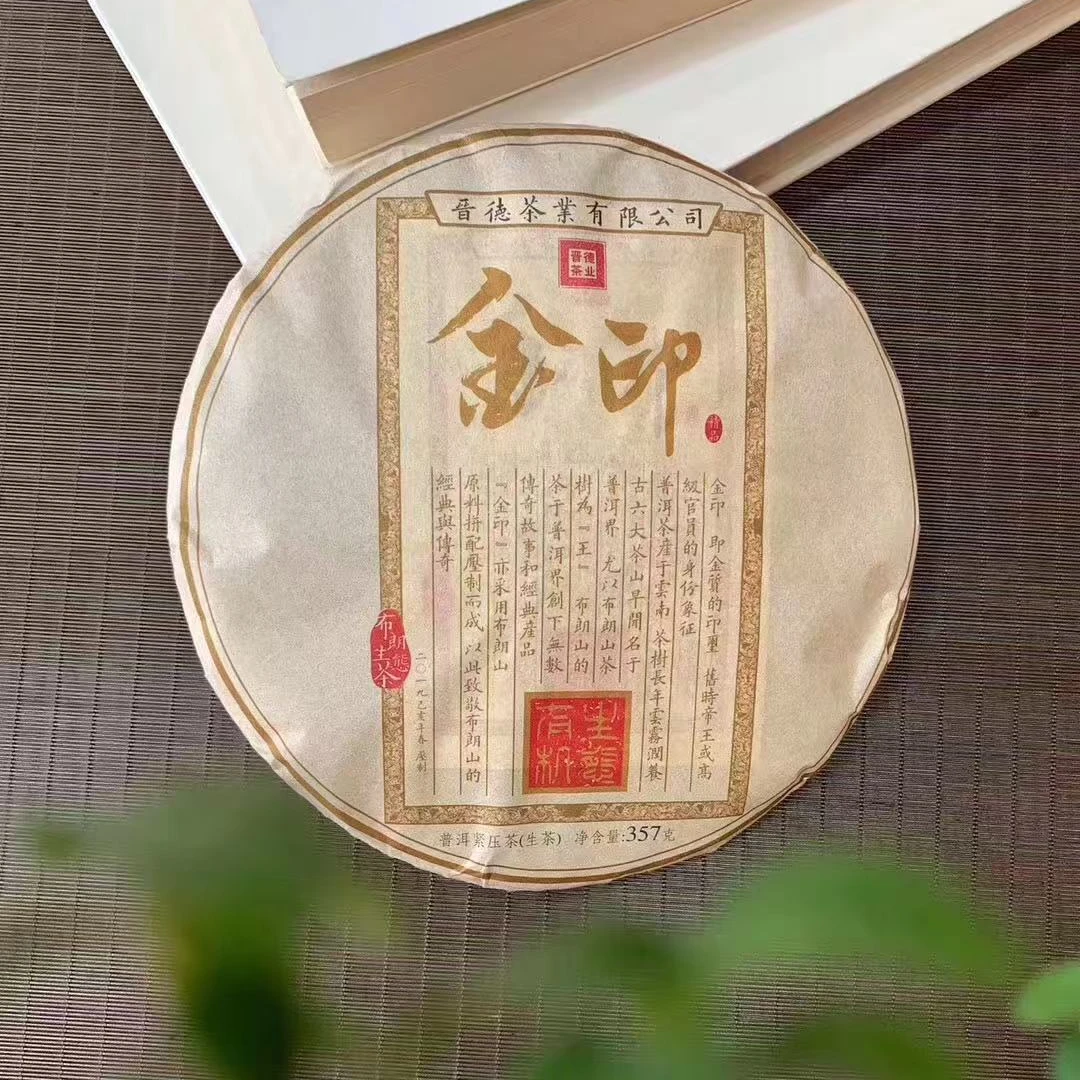 晉德茶業有限公司
晉德
茶业
金印
精品
金印 即金質的印璽 舊時帝王或高
級官員的身份象征
普洱茶産于雲南 茶樹長年雲霧潤養
古六大茶山早聞名于
普洱界 尤以布朗山茶
樹為『王』 布朗山的
茶于普洱界創下無數
傳奇故事和經典産品
『金印』亦采用布朗山
原料拼配壓制而成 以此致敬布朗山的
經典與傳奇
布朗態
生茶
二〇一九己亥年春 壓制
生態
有机
普洱紧压茶(生茶) 净含量:357克